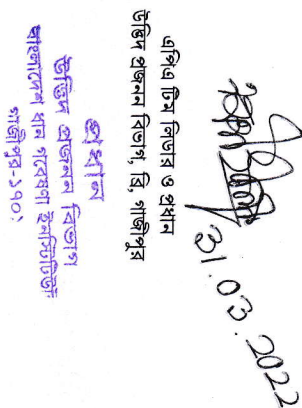 31.03.2022
এপিএ টিম লিডার ও প্রধান
উদ্ভিদ প্রজনন বিভাগ, ব্রি, গাজীপুর
প্রধান
উদ্ভিদ প্রজনন বিভাগ
বাংলাদেশ ধান গবেষণা ইনস্টিটিউট
গাজীপুর-১৭০১